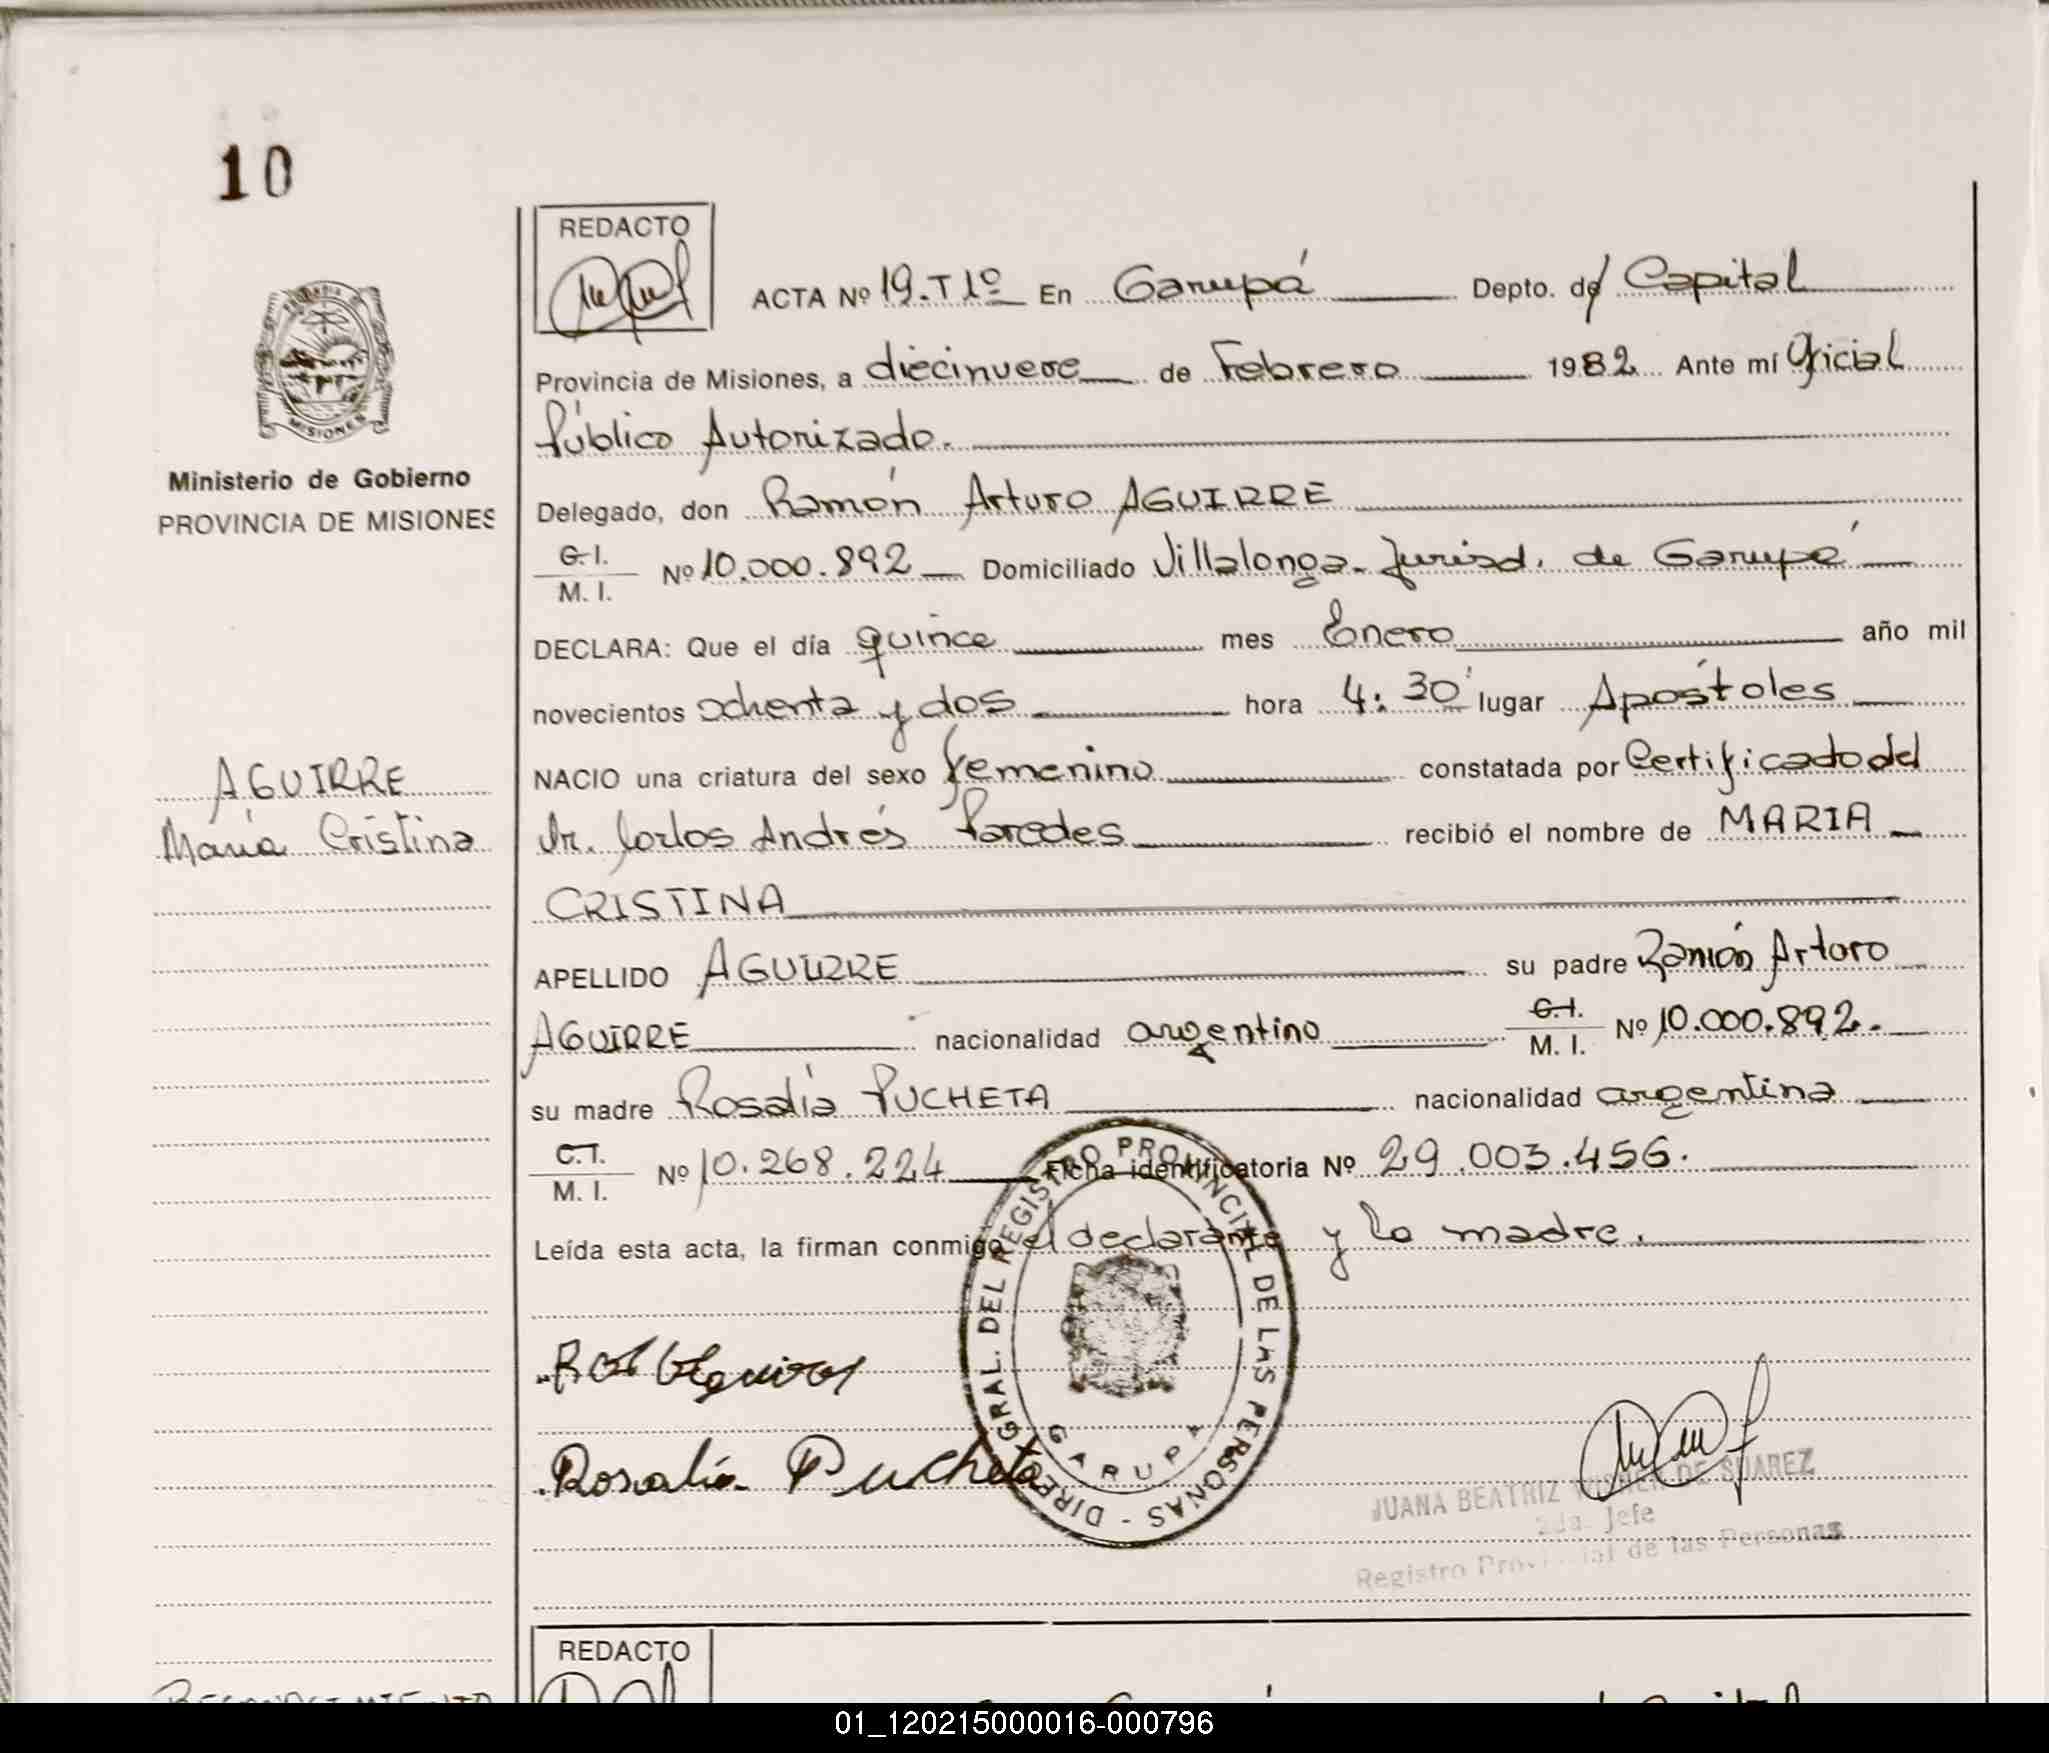 10
REDACTO
ACTA Nº 19.T1º En Garupá Depto. de Capital
Provincia de Misiones, a diecinueve de Febrero 1982 Ante mí Oficial
Público Autorizado.
Ministerio de Gobierno
PROVINCIA DE MISIONES
Delegado, don Ramón Arturo AGUIRRE
C.I. M.I. Nº 10.000.892 Domiciliado Villalonga-Jurisd. de Garupá
DECLARA: Que el día quince mes Enero año mil
novecientos ochenta y dos hora 4:30' lugar Apóstoles
AGUIRRE
María Cristina
NACIO una criatura del sexo femenino constatada por Certificado del
Dr. Carlos Andrés Paredes recibió el nombre de MARIA
CRISTINA
APELLIDO AGUIRRE su padre Ramón Arturo
AGUIRRE nacionalidad argentino C.I. M.I. Nº 10.000.892.
su madre Rosalía PUCHETA nacionalidad argentina
C.I. M.I. Nº 10.268.224 Ficha identificatoria Nº 29.003.456.
Leída esta acta, la firman conmigo el declarante y la madre.
DIREC. GRAL. DEL REGISTRO PROVINCIAL DE LAS PERSONAS -
GARUPA
Rosalía Pucheta
JUANA BEATRIZ DE SUAREZ
2da. Jefe
Registro Provincial de las Personas
REDACTO
RECONOCIMIENTO
01_120215000016-000796